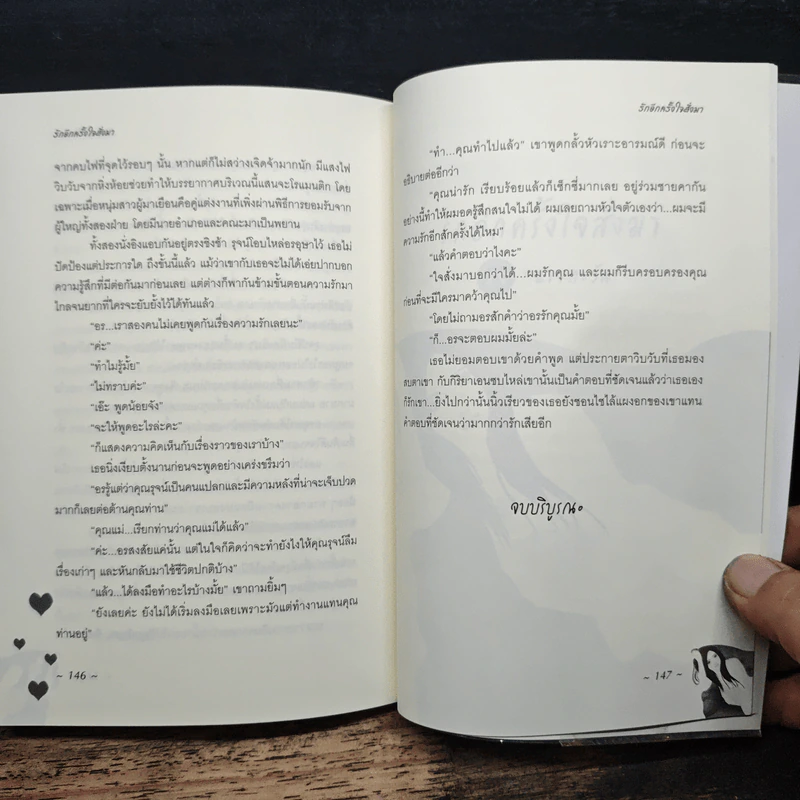 รักอีกครั้งใจสั่งมา
จากคบไฟที่จุดไว้รอบๆ นั้น หากแต่ก็ไม่สว่างเจิดจ้ามากนัก มีแสงไฟ
วิบวับจากหิ่งห้อยช่วยทำให้บรรยากาศบริเวณนี้แสนจะโรแมนติก โดย
เฉพาะเมื่อหนุ่มสาวผู้มาเยือนคือคู่แต่งงานที่เพิ่งผ่านพิธีการยอมรับจาก
ผู้ใหญ่ทั้งสองฝ่าย โดยมีนายอำเภอและคณะมาเป็นพยาน
ทั้งสองนั่งอิงแอบกันอยู่ตรงชิงช้า รุจน์โอบไหล่อรอุษาไว้ เธอไม่
ปัดป้องแต่ประการใด ถึงขั้นนี้แล้ว แม้ว่าเขากับเธอจะไม่ได้เอ่ยปากบอก
ความรู้สึกที่มีต่อกันมาก่อนเลย แต่ต่างก็พากันข้ามขั้นตอนความรักมา
ไกลจนยากที่ใครจะยับยั้งไว้ได้ทันแล้ว
“อร...เราสองคนไม่เคยพูดกันเรื่องความรักเลยนะ”
“ค่ะ”
“ทำไมรู้มั้ย”
“ไม่ทราบค่ะ”
“เอ๊ะ พูดน้อยจัง”
“จะให้พูดอะไรล่ะคะ”
“ก็แสดงความคิดเห็นกับเรื่องราวของเราบ้าง”
เธอนิ่งเงียบตั้งนานก่อนจะพูดอย่างเคร่งขรึมว่า
“อรรู้แต่ว่าคุณรุจน์เป็นคนแปลกและมีความหลังที่น่าจะเจ็บปวด
มากก็เลยต่อต้านคุณท่าน”
“คุณแม่...เรียกท่านว่าคุณแม่ได้แล้ว”
“ค่ะ...อรสงสัยแค่นั้น แต่ในใจก็คิดว่าจะทำยังไงให้คุณรุจน์ลืม
เรื่องเก่าๆ และหันกลับมาใช้ชีวิตปกติบ้าง”
“แล้ว...ได้ลงมือทำอะไรบ้างมั้ย” เขาถามยิ้มๆ
“ยังเลยค่ะ ยังไม่ได้เริ่มลงมือเลยเพราะมัวแต่ทำงานแทนคุณ
ท่านอยู่”
~ 146 ~
รักอีกครั้งใจสั่งมา
“ทำ...คุณทำไปแล้ว” เขาพูดกลั้วหัวเราะอารมณ์ดี ก่อนจะ
อธิบายต่ออีกว่า
“คุณน่ารัก เรียบร้อยแล้วก็เซ็กซี่มากเลย อยู่ร่วมชายคากัน
อย่างนี้ทำให้ผมอดรู้สึกสนใจไม่ได้ ผมเลยถามหัวใจตัวเองว่า...ผมจะมี
ความรักอีกสักครั้งได้ไหม”
“แล้วคำตอบว่าไงคะ”
“ใจสั่งมาบอกว่าได้...ผมรักคุณ และผมก็รีบครอบครองคุณ
ก่อนที่จะมีใครมาคว้าคุณไป”
“โดยไม่ถามอรสักคำว่าอรรักคุณมั้ย”
“ก็...อรจะตอบผมมั้ยล่ะ”
เธอไม่ยอมตอบเขาด้วยคำพูด แต่ประกายตาวิบวับที่เธอมอง
สบตาเขา กับกิริยาเอนซบไหล่เขานั้นเป็นคำตอบที่ชัดเจนแล้วว่าเธอเอง
ก็รักเขา...ยิ่งไปกว่านั้นนิ้วเรียวของเธอยังซอนไซไล้แผงอกของเขาแทน
คำตอบที่ชัดเจนว่ามากกว่ารักเสียอีก
จบบริบูรณ์
~ 147 ~